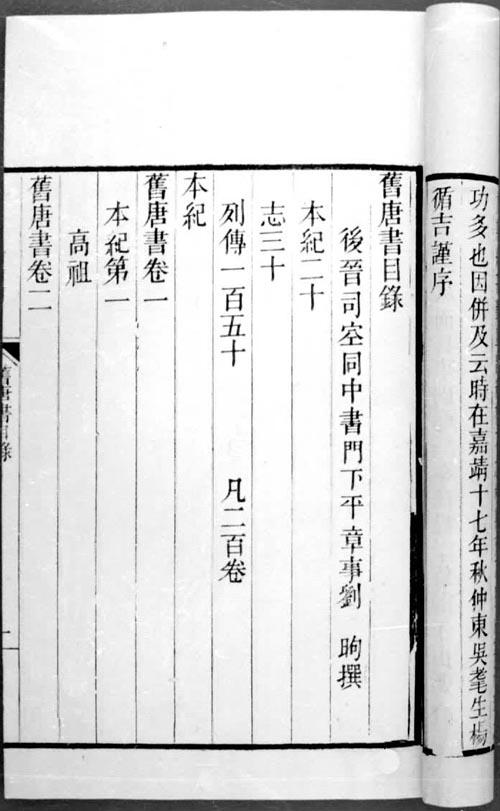 功多也因併及云時在嘉靖十七年秋仲東吳耄生楊
循吉謹序
舊唐書目錄
後晉司空同中書門下平章事劉 昫撰
本紀二十
志三十
列傳一百五十 凡二百卷
本紀
舊唐書卷一
本紀第一
高祖
舊唐書卷二
舊唐書目錄
二